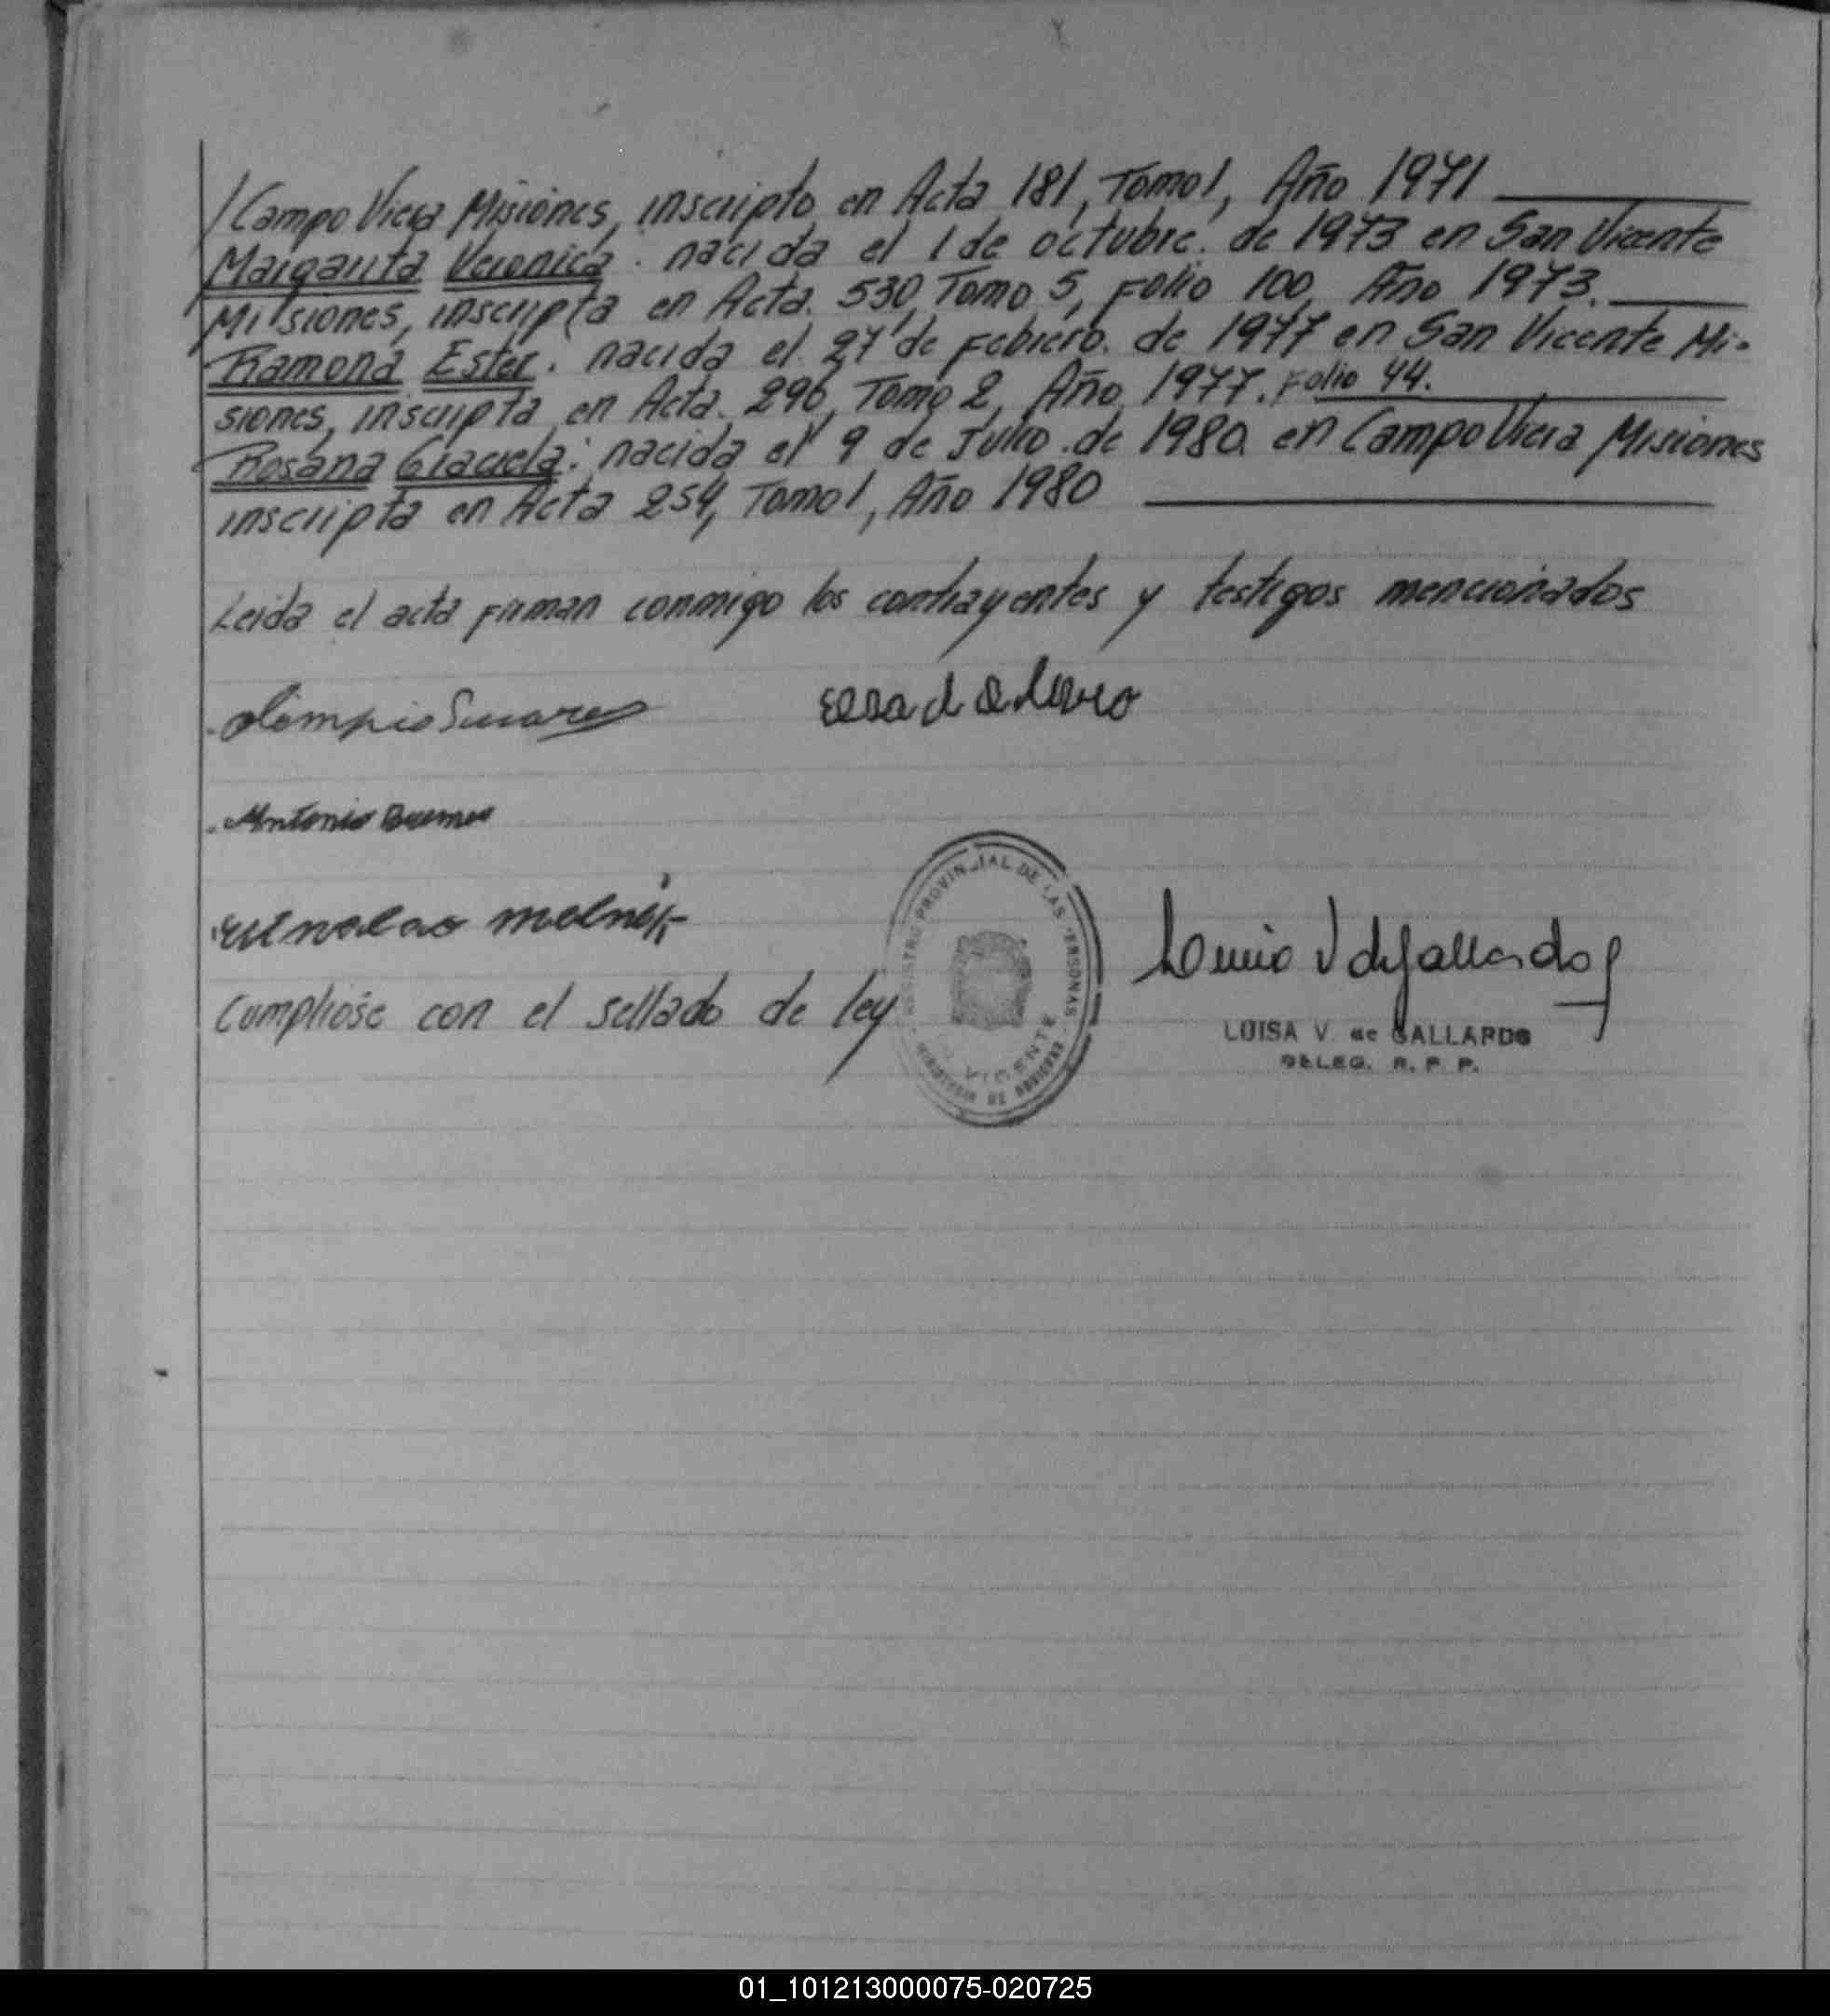 /Campo Viera Misiones, inscripto en Acta 181, Tomo 1, Año 1971
Margarita Veronica. nacida el 1 de octubre. de 1973 en San Vicente
Misiones, inscripta en Acta. 530, Tomo 5, Folio 100, Año 1973.
Ramona Ester. nacida el 27 de Febrero. de 1977 en San Vicente Mi-
siones, inscripta en Acta. 296, Tomo 2, Año 1977. Folio 44.
Rosana Graciela: nacida el 9 de Julio. de 1980 en Campo Viera Misiones
inscripta en Acta 254, Tomo 1, Año 1980
Leida el acta firman conmigo los contrayentes y testigos mencionados
Olimpio Suarez
Antonio
melnik
Cumpliose con el sellado de ley
REGISTRO PROVINCIAL DE LAS PERSONAS
VICENTE
MINISTERIO DE GOBIERNO
V de Gallardo
LUISA V. de GALLARDO
DELEG. R. P. P.
01_101213000075-020725